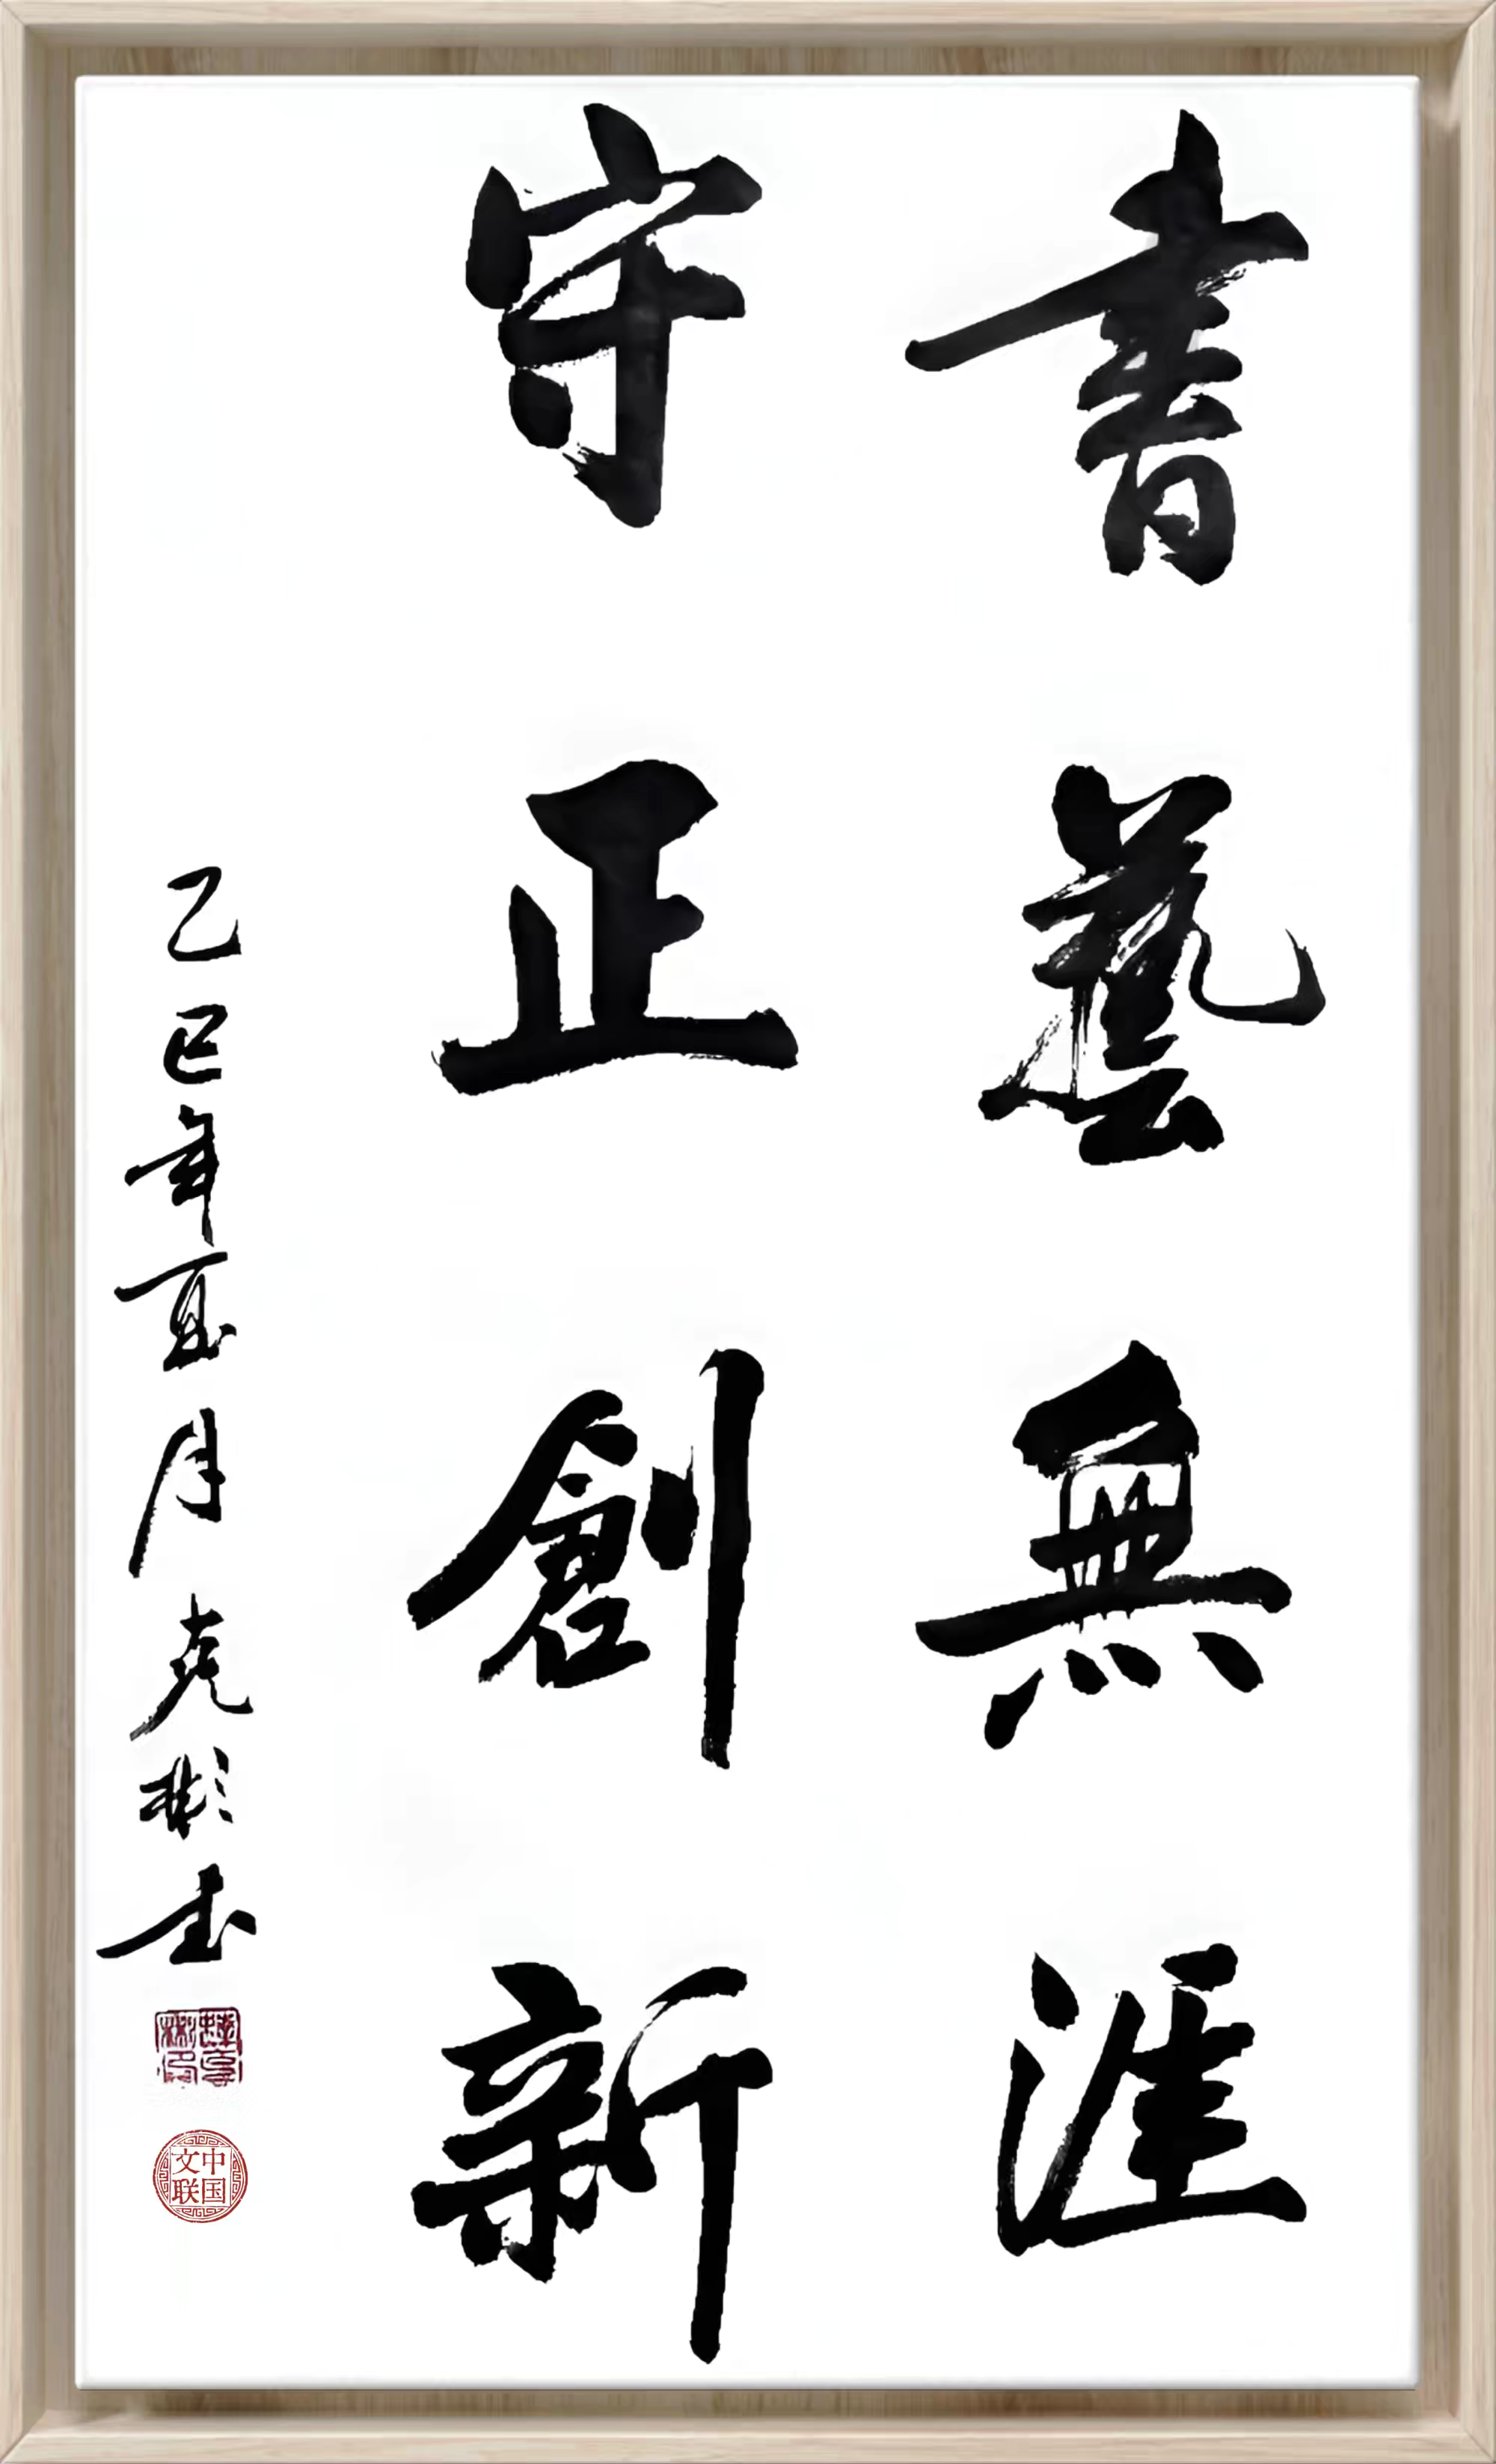 書藝無涯
守正創新
乙巳年夏月克彬书
中国文联